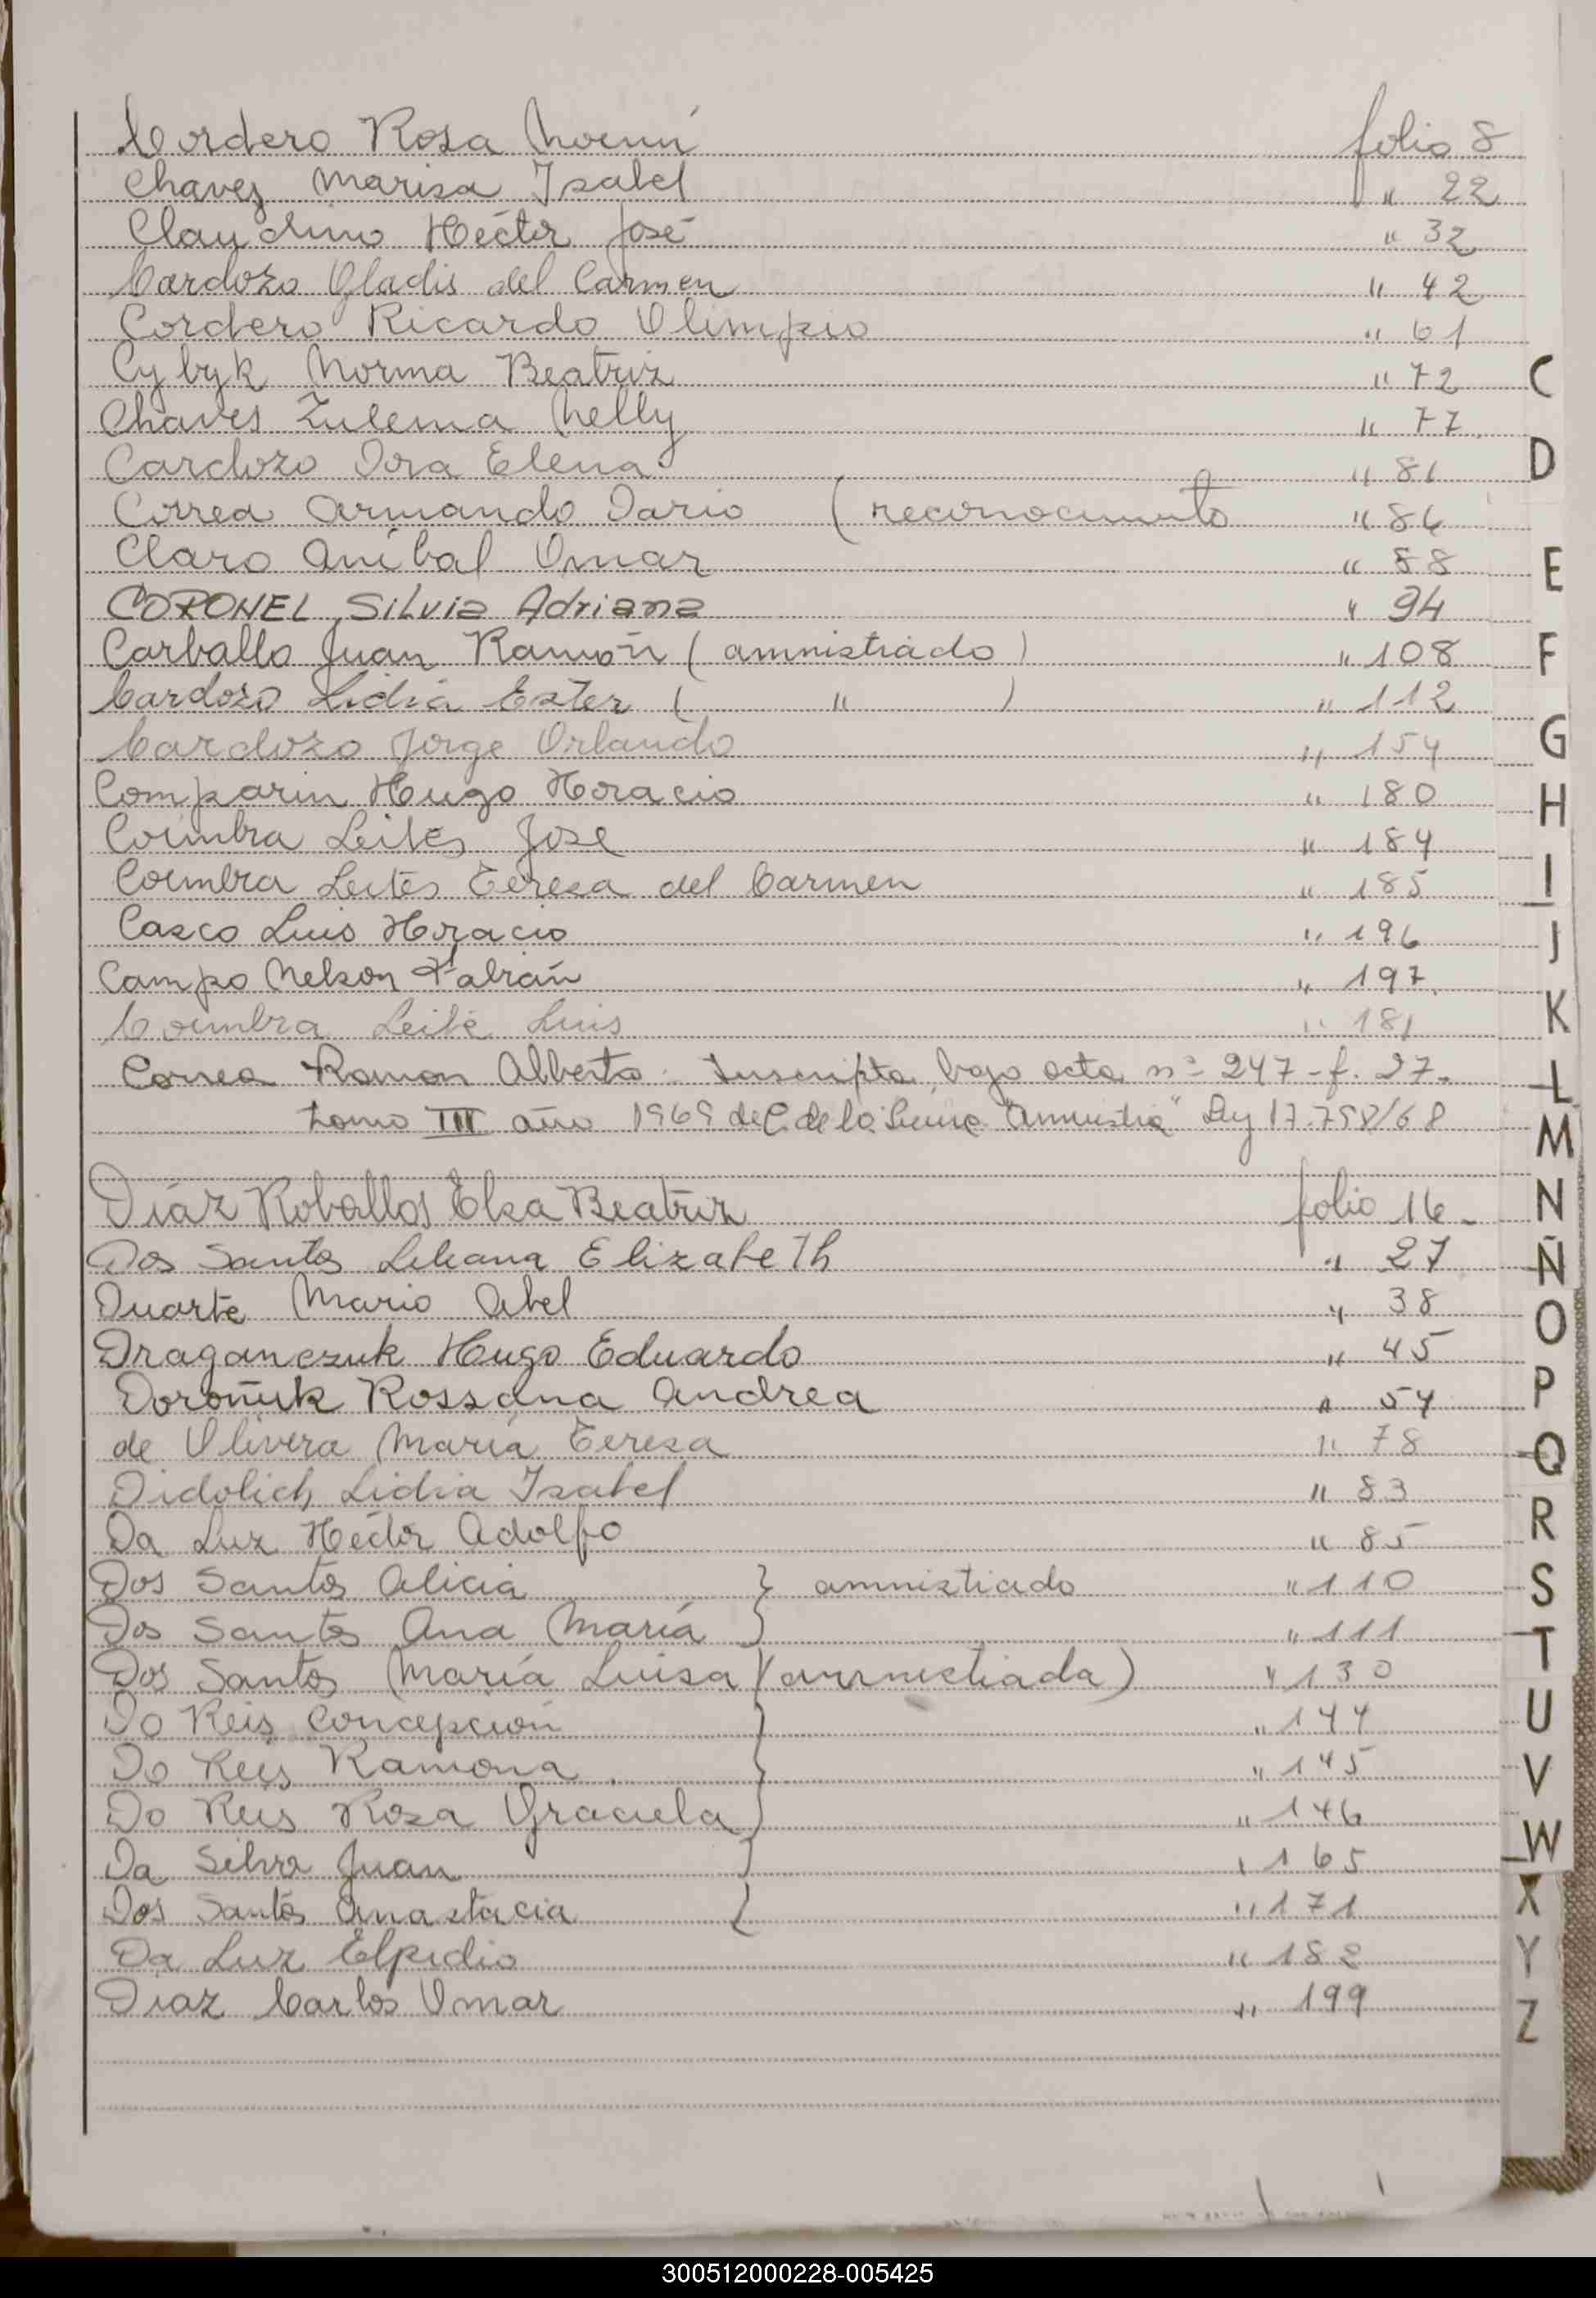 Cordero Rosa Noemí folio 8
Chavez Marisa Isabel " 22
Claudino Héctor José " 32
Cardozo Gladis del Carmen " 42
Cordero Ricardo Olimpio " 61
Cybyk Norma Beatriz " 72
Chaves Zulema Nelly " 77
Cardozo Dora Elena " 81
Correa Armando Dario (reconocimiento " 86
Claro Aníbal Omar " 88
CORONEL, Silvia Adriana " 94
Carballo Juan Ramón (amnistiado) " 108
Cardozo Lidia Ester ( " ) " 112
Cardozo Jorge Orlando " 154
Comparin Hugo Horacio " 180
Coimbra Leites José " 184
Coimbra Leites Teresa del Carmen " 185
Casco Luis Horacio " 196
Campo Nelson Fabián " 197
Coimbra Leite Luis " 181
Correa Ramon Alberto. Inscripta bajo acta nº 247 - f. 27-
tomo III año 1969 de C. de la "Amnistia" Ley 17.798/68
Díaz Roballos Elsa Beatriz folio 16-
Dos Santos Liliana Elizabeth " 27
Duarte Mario Abel " 38
Draganczuk Hugo Eduardo " 45
Doroñuk Rossana Andrea " 54
de Olivera María Teresa " 78
Didolich Lidia Isabel " 83
Da Luz Héctor Adolfo " 85
Dos Santos Alicia } amnistiado " 110
Dos Santos Ana María } " 111
Dos Santos María Luisa (amnistiada) " 130
Do Reis Concepción } " 144
Do Reis Ramona } " 145
Do Reis Rosa Graciela } " 146
Da Silva Juan } " 165
Dos Santos Anastacia { " 171
Da Luz Elpidio " 182
Díaz Carlos Omar " 199
C
D
E
F
G
H
I
J
K
L
M
N
Ñ
O
P
Q
R
S
T
U
V
W
X
Y
Z
300512000228-005425